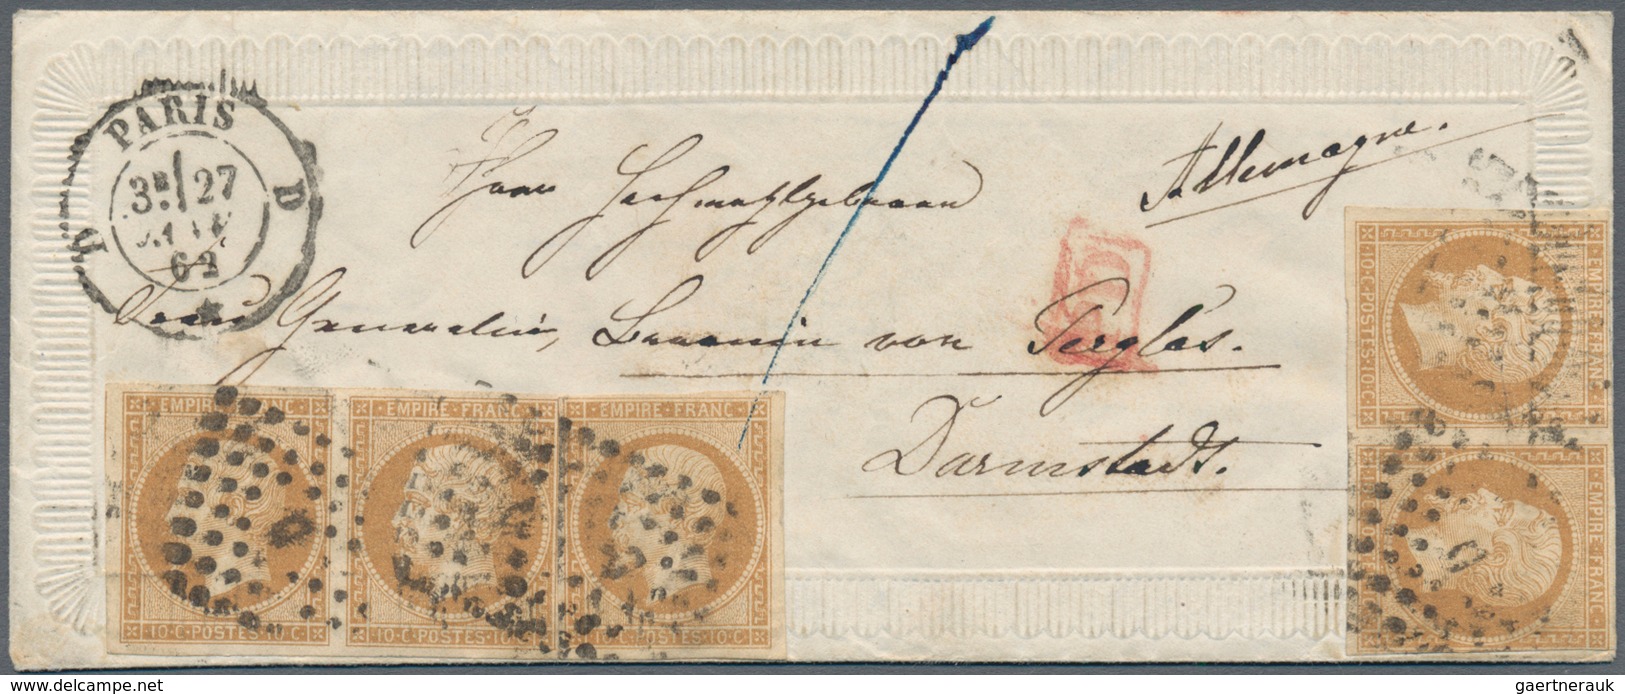 PARIS
3E 27
62
D D
Allemagne.
Frau Generalin, Baronin von Perglas.
Darmstadt.
PD
EMPIRE · FRANC · EMPIRE · FRANC · EMPIRE · FRANC ·
10 · C · POSTES · 10 C · 10 · C · POSTES · 10 C · 10 · C · POSTES · 10 C ·
EMPIRE · FRANC ·
10 · C · POSTES · 10 · C
EMPIRE · FRANC ·
10 · C · POSTES · 10 · C
© www.delcampe.net
gaertnerauk